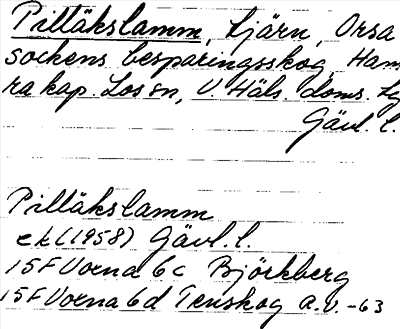 Pilläkslamm, tjärn, Orsa
sockens besparingsskog, Ham
ra kap. Lossn, V. Häls. doms. Lg
Gävl. l.
Pilläkslamm
ek (1958) Gävl. l.
15F Voxna 6c Björkberg
15F Voxna 6d Tenskog a.v. -63